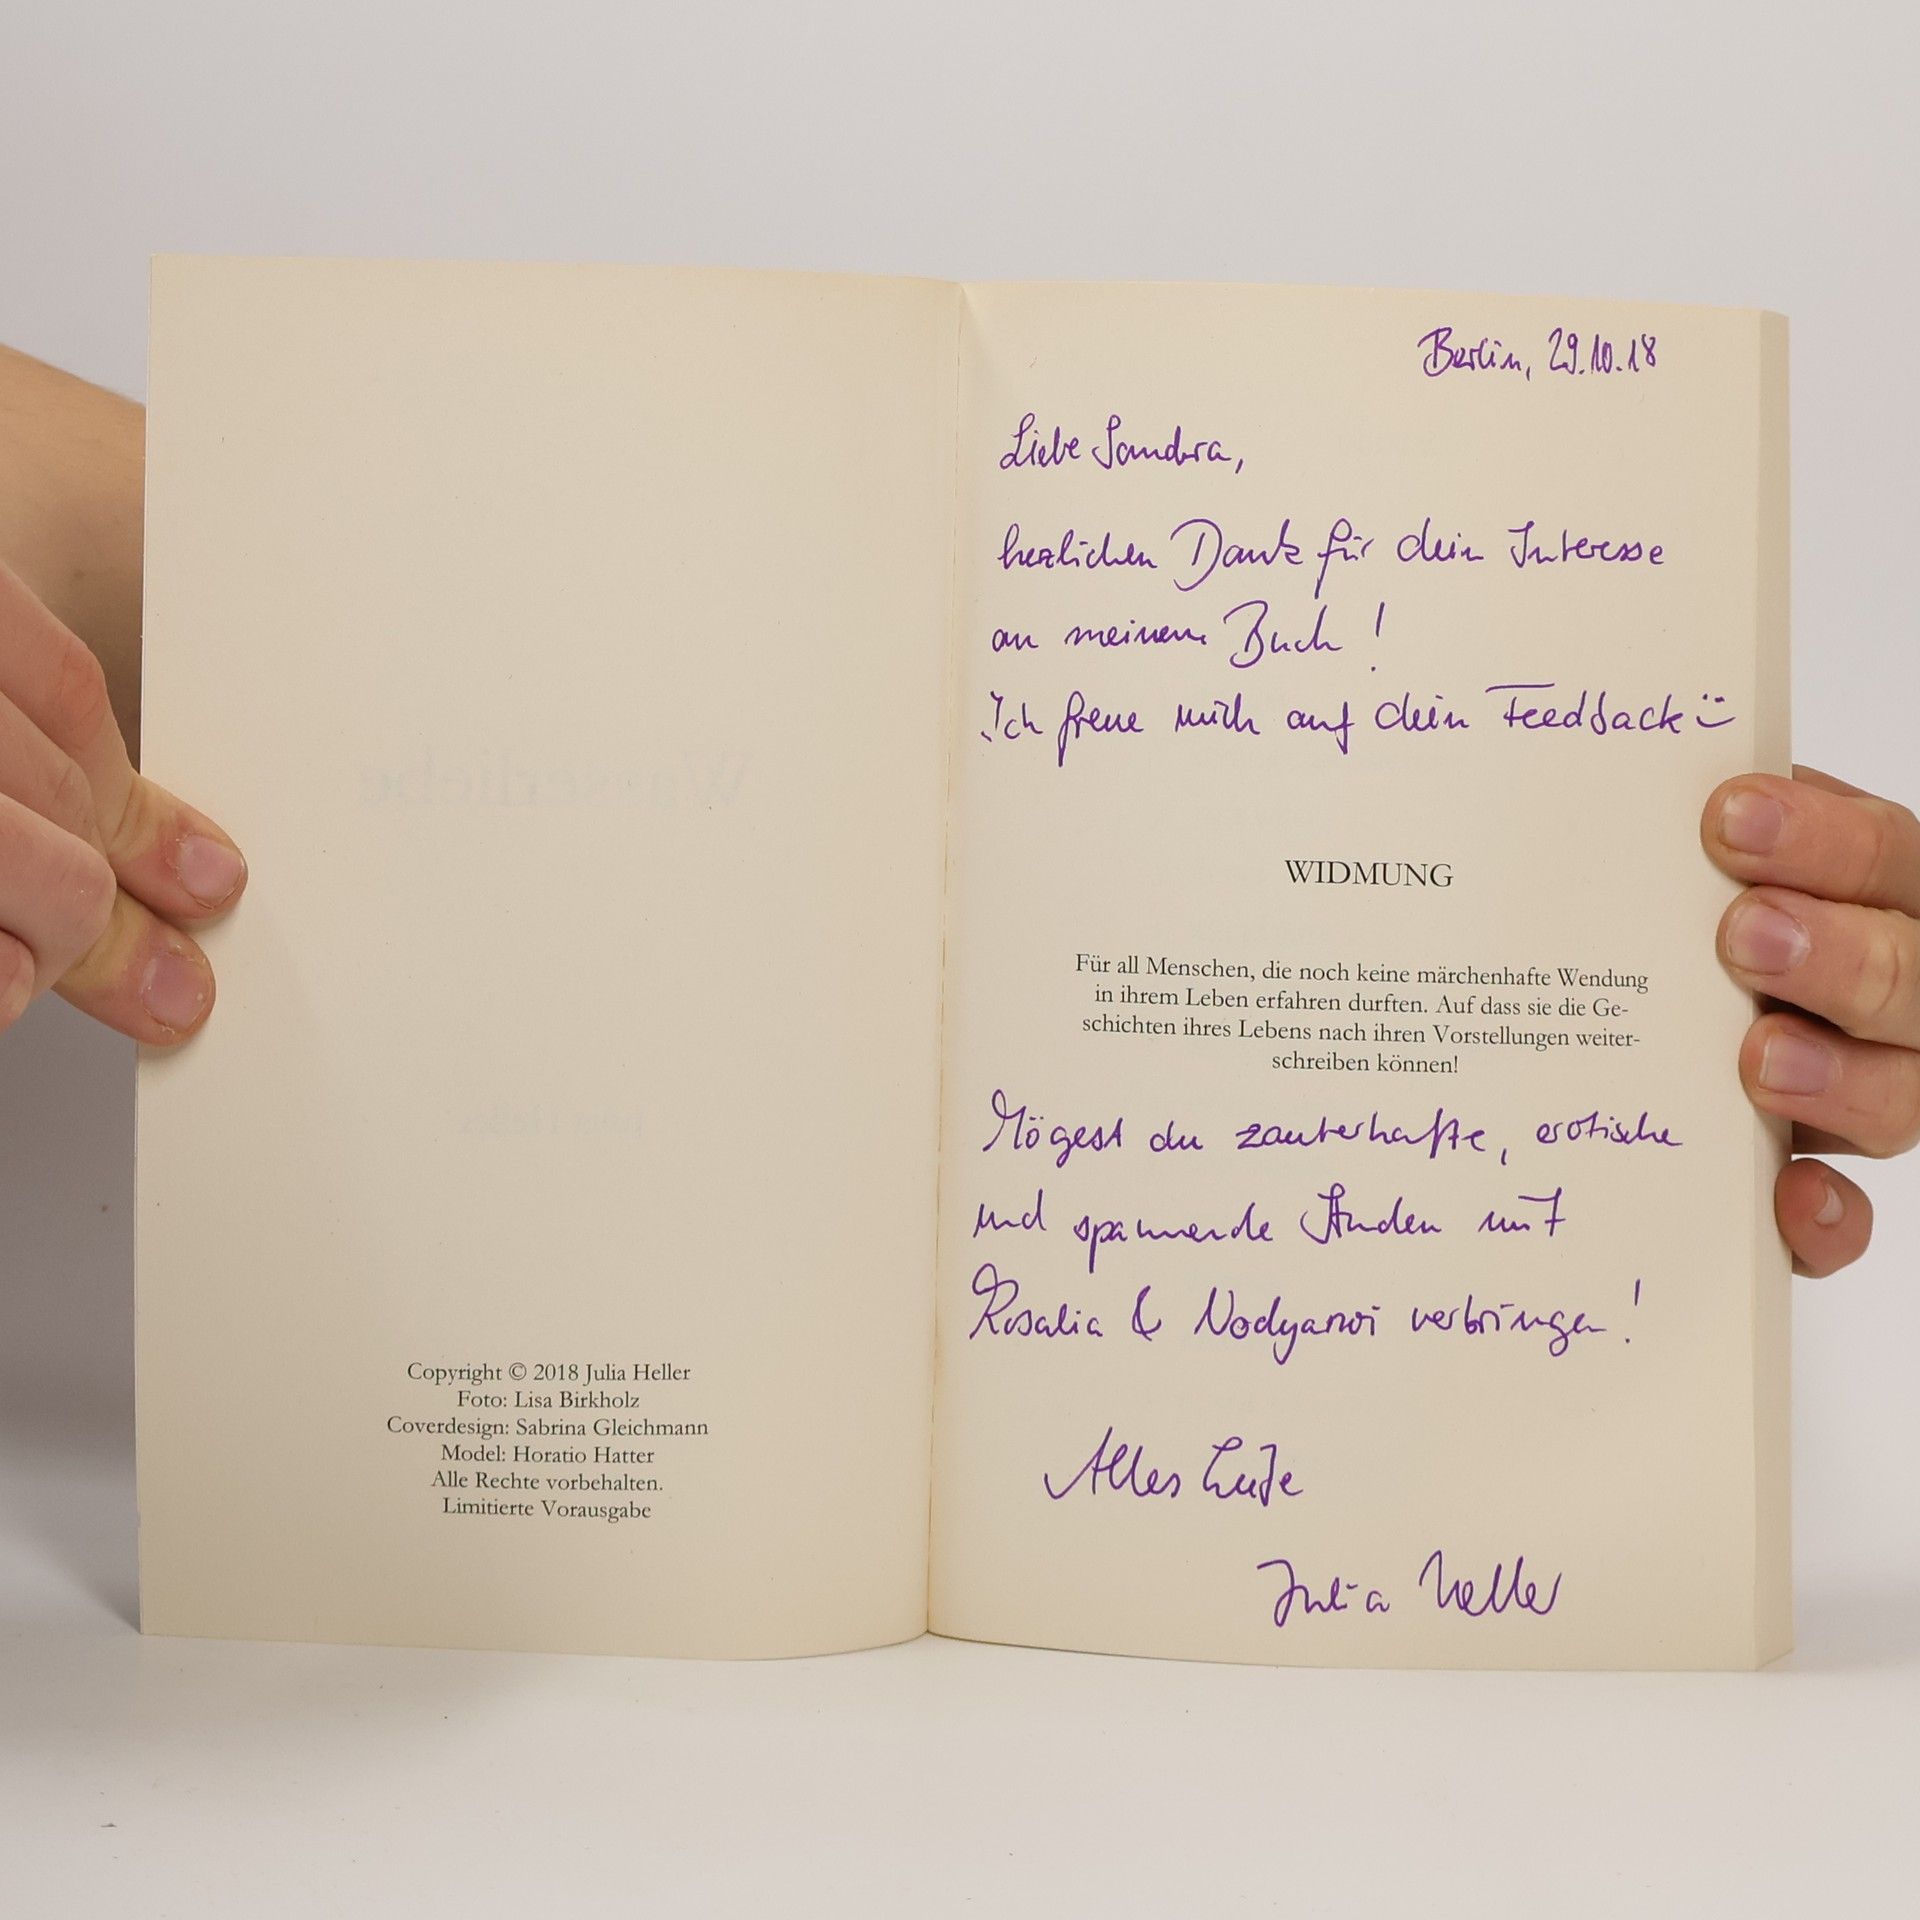 Wasserliebe
Copyright © 2018 Julia Heller
Foto: Lisa Birkholz
Coverdesign: Sabrina Gleichmann
Model: Horatio Hatter
Alle Rechte vorbehalten.
Limitierte Vorausgabe
Berlin, 29.10.18
Liebe Sandra,
herzlichen Dank für dein Interesse
an meinem Buch!
Ich freue mich auf dein Feedback :)
WIDMUNG
Für all Menschen, die noch keine märchenhafte Wendung
in ihrem Leben erfahren durften. Auf dass sie die Ge-
schichten ihres Lebens nach ihren Vorstellungen weiter-
schreiben können!
Mögest du zauberhafte, erotische
und spannende Stunden mit
Rosalia & verbringen!
Alles Liebe
Julia Heller